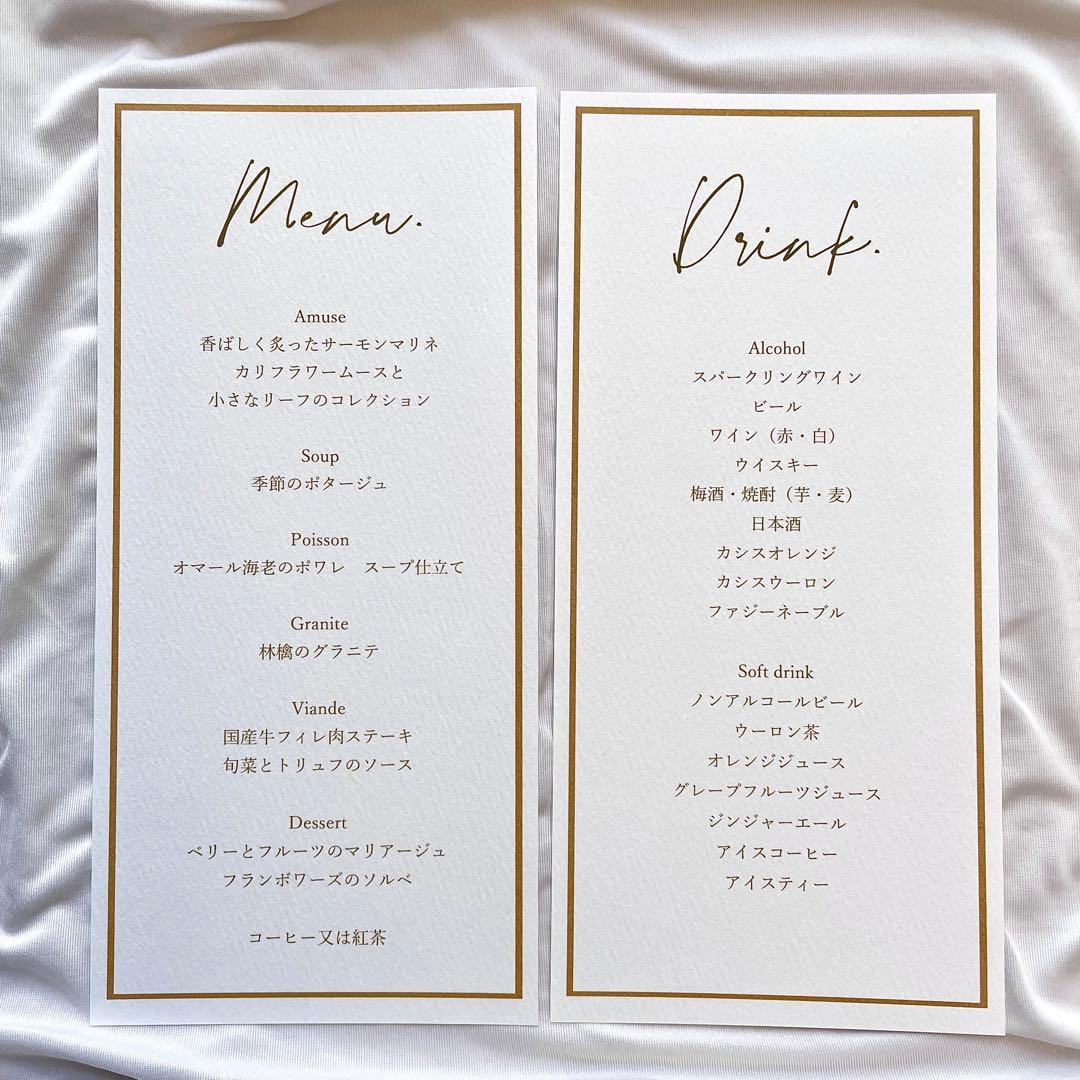 Menu.
Amuse
香ばしく炙ったサーモンマリネ
カリフラワームースと
小さなリーフのコレクション
Soup
季節のポタージュ
Poisson
オマール海老のポワレ　スープ仕立て
Granite
林檎のグラニテ
Viande
国産牛フィレ肉ステーキ
旬菜とトリュフのソース
Dessert
ベリーとフルーツのマリアージュ
フランボワーズのソルベ
コーヒー又は紅茶
Drink.
Alcohol
スパークリングワイン
ビール
ワイン（赤・白）
ウイスキー
梅酒・焼酎（芋・麦）
日本酒
カシスオレンジ
カシスウーロン
ファジーネーブル
Soft drink
ノンアルコールビール
ウーロン茶
オレンジジュース
グレープフルーツジュース
ジンジャーエール
アイスコーヒー
アイスティー